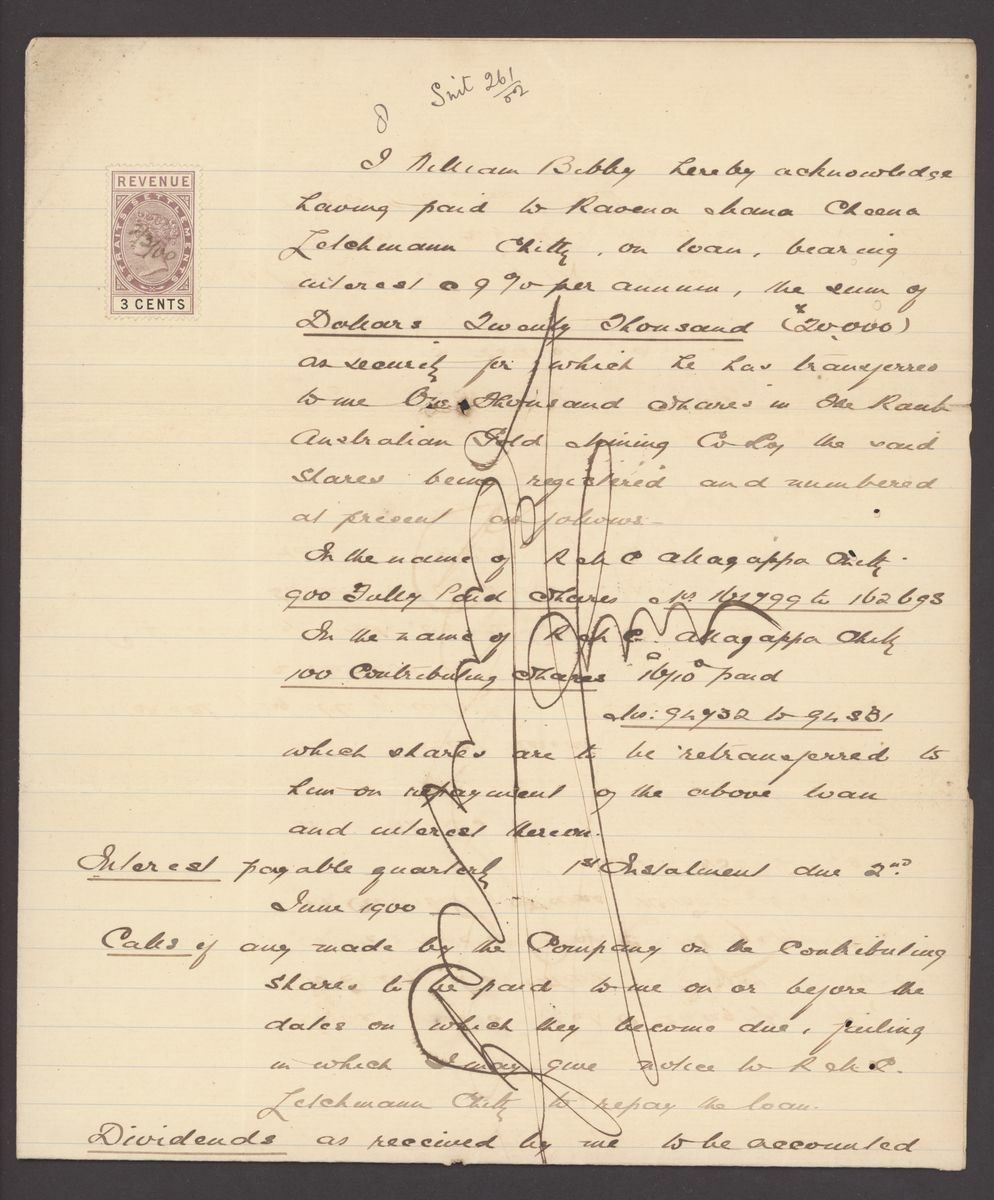 Suit 261/02
8
I William Bibby hereby acknowledge
REVENUE
STRAITS SETTLEMENTS
2/3/00
3 CENTS
having paid to Ravena Mana Cheena
Letchmann Chitty, on loan, bearing
interest @ 9 % per annum, the sum of
Dollars Twenty Thousand ($20.000)
as security for which he has transferred
to me One Thousand Shares in the Raub
Australian Gold Mining Co Ly the said
shares being registered and numbered
at present as follows -
In the name of R M C Allagappa Chitty -
900 Fully Paid Shares No. to 162698
In the name of R M C. Allagappa Chitty
100 Contributing Shares paid
No: 94732 to 94831
which shares are to be retransferred to
him on repayment of the above loan
and interest thereon.
Interest payable quarterly 1st Instalment due 2nd
June 1900
Calls if any made by the Company on the Contributing
shares to be paid to me on or before the
dates on which they become due, failing
in which I may give notice to R M C.
Letchmann Chitty to repay the loan.
Dividends as received by me to be accounted